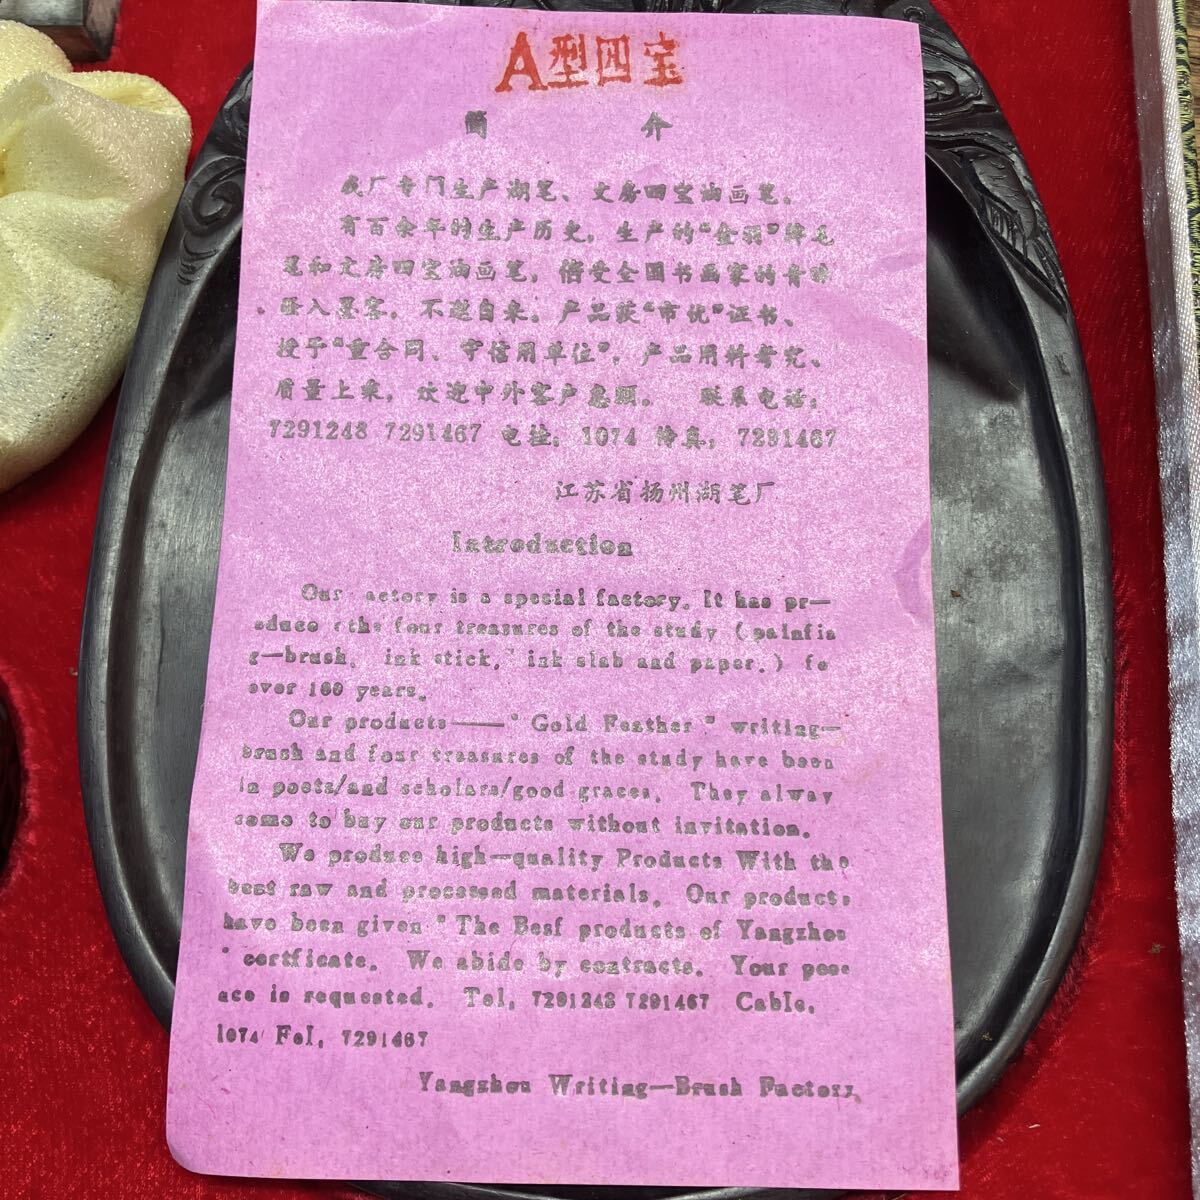 A型四宝
简 介
我厂专门生产湖笔、文房四宝油画笔。
有百余年的生产历史，生产的“金羽”牌毛
笔和文房四宝油画笔，倍受全国书画家的青睐
入墨客，不邀自来。产品获“市优”证书、
授于“重合同、守信用单位”，产品用料考究、
质量上乘，欢迎中外客户惠顾。 联系电话：
7291248 7291467 电挂：1074 传真，7291467
江苏省扬州湖笔厂
Introduction
Our actory is a special factory. It has pr—
oduce the four treasures of the study (painfin
g—brush, ink stick, ink slab and paper.) fo
over 100 years.
Our products——" Gold Feather " writing—
brush and four treasures of the study have been
in poets/and scholars/good graces. They alway
come to buy our products without invitation.
We produce high—quality Products With the
best raw and processed materials. Our products
have been given " The Besf products of Yangzhou
" certficate. We abide by contracts. Your
is requested. Tel, 7291248 7291467 Cable.
1074 Fel, 7291467
Yangzhou Writing—Brush Factory.